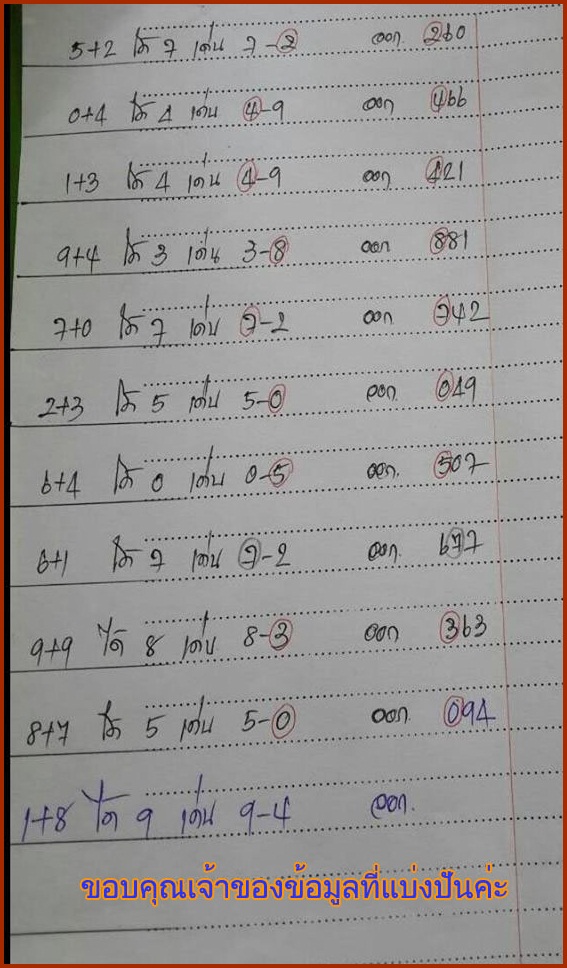 5+2 ได้ 7 เด่น 7-2 ออก. 260
0+4 ได้ 4 เด่น 4-9 ออก 466
1+3 ได้ 4 เด่น 4-9 ออก 421
9+4 ได้ 3 เด่น 3-8 ออก 881
7+0 ได้ 7 เด่น 7-2 ออก. 742
2+3 ได้ 5 เด่น 5-0 ออก. 049
6+4 ได้ 0 เด่น 0-5 ออก. 507
6+1 ได้ 7 เด่น 7-2 ออก. 677
9+9 ได้ 8 เด่น 8-3 ออก 363
8+7 ได้ 5 เด่น 5-0 ออก. 094
1+8 ได้ 9 เด่น 9-4 ออก.
ขอบคุณเจ้าของข้อมูลที่แบ่งปันค่ะ